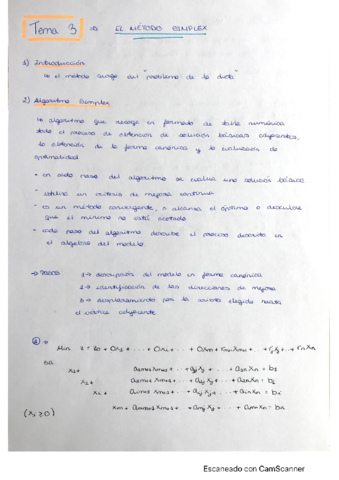 Tema 3 → EL MÉTODO SIMPLEX
1) Introducción
↳ el método surge del "problema de la dieta"
2) Algoritmo Simplex
↳ algoritmo que recoge en formato de tabla numérica
todo el proceso de obtención de solución básicas adyacentes,
la obtención de la forma canónica y la evaluación de
optimalidad
- en cada fase del algoritmo se evalúa una solución básica
- utiliza un criterio de mejora continua
- es un método convergente, o alcanza el óptimo o descubre
que el mínimo no está acotado
- cada paso del algoritmo describe el proceso descrito en
el álgebra del modelo
→ Pasos 1→ descripción del modelo en forma canónica
2→ identificación de las direcciones de mejora
3→ desplazamiento por la arista elegida hasta
el vértice adyacente.
① →
Min z = z0 + 0x1 + ... + 0xi + ... + 0xm + rm+1 xm+1 + ... + rj xj + ... + rn xn
s.a.
x1+ a1m+1 xm+1 + ... + a1j xj + ... + a1n xn = b1
x2+ a2m+1 xm+1 + ... + a2j xj + ... + a2n xn = b2
xi + aim+1 xm+1 + ... + aij xj + ... + ain xn = bi
(xi ≥ 0) xm + amm+1 xm+1 + ... + amj xj + ... + amn xn = bm
Escaneado con CamScanner